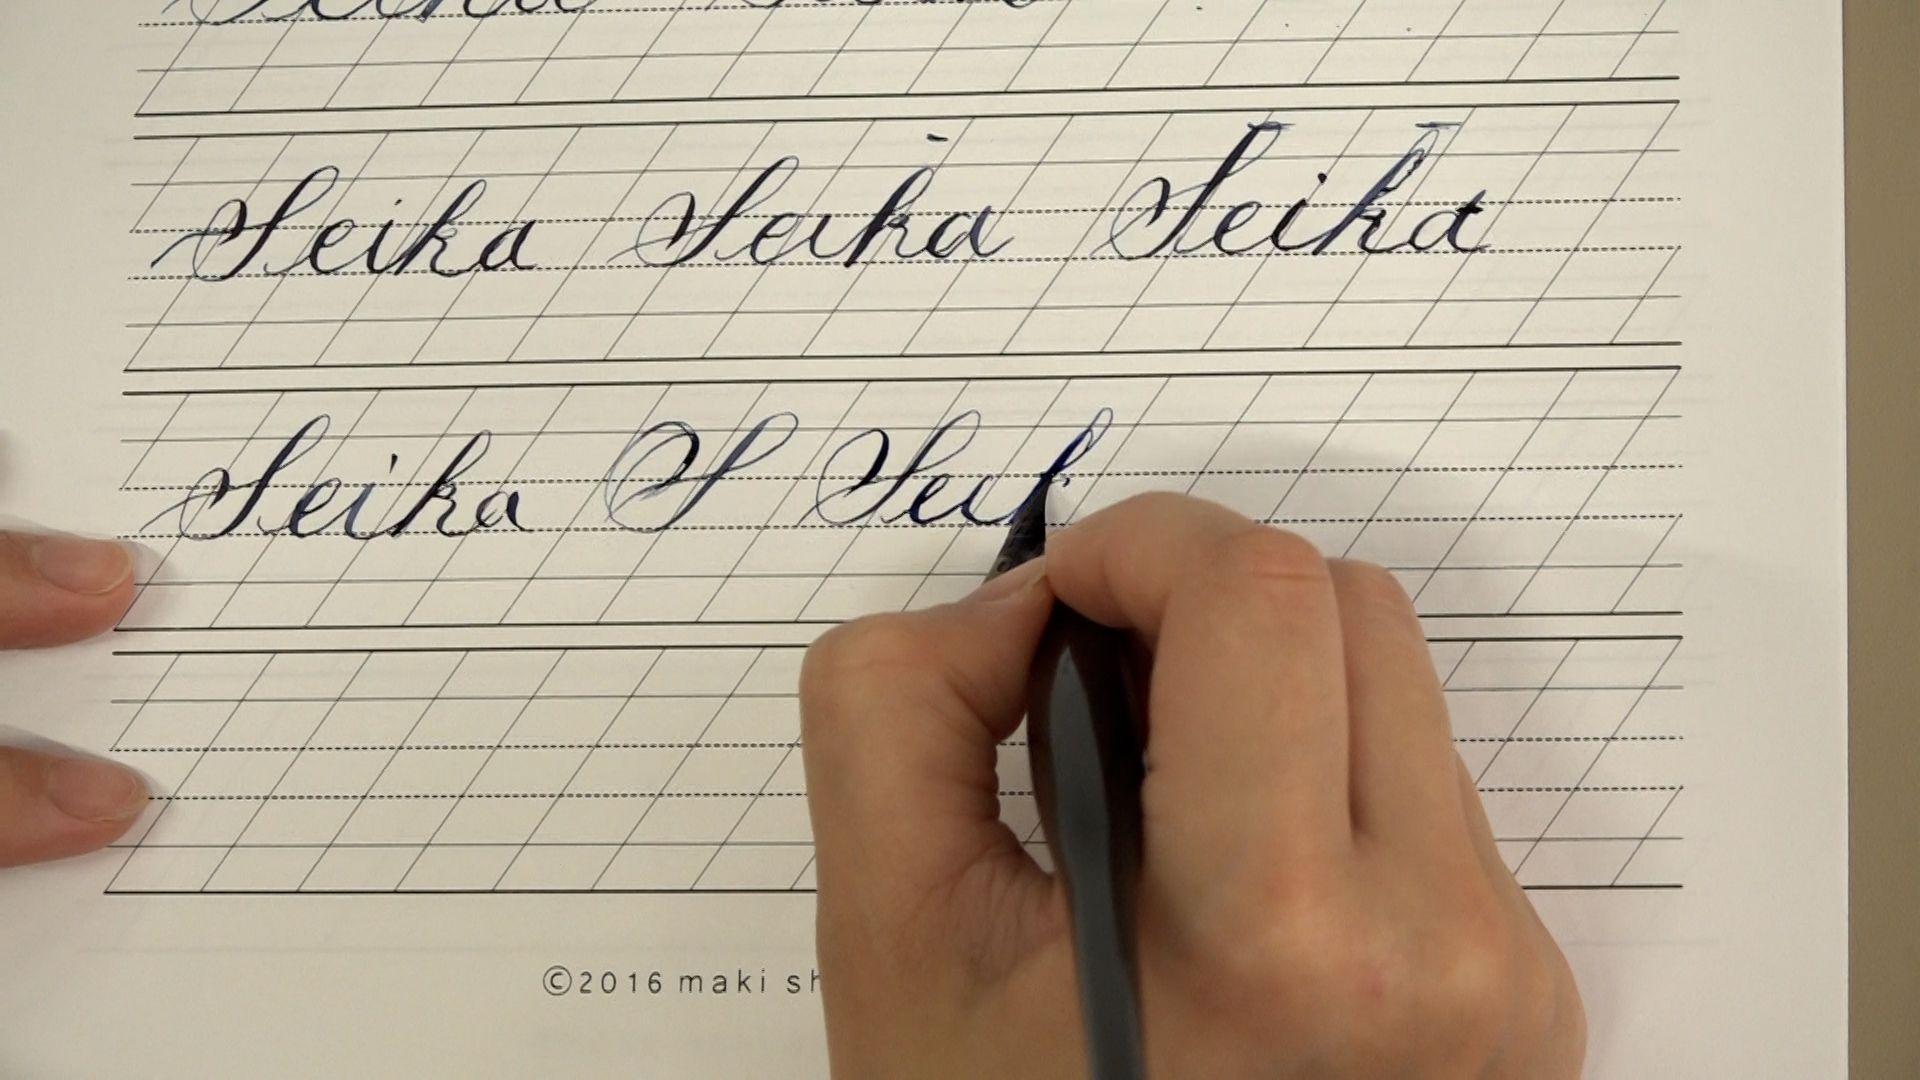 Seika
Seika Seika Seika
Seika S Seik
©2016 maki sh